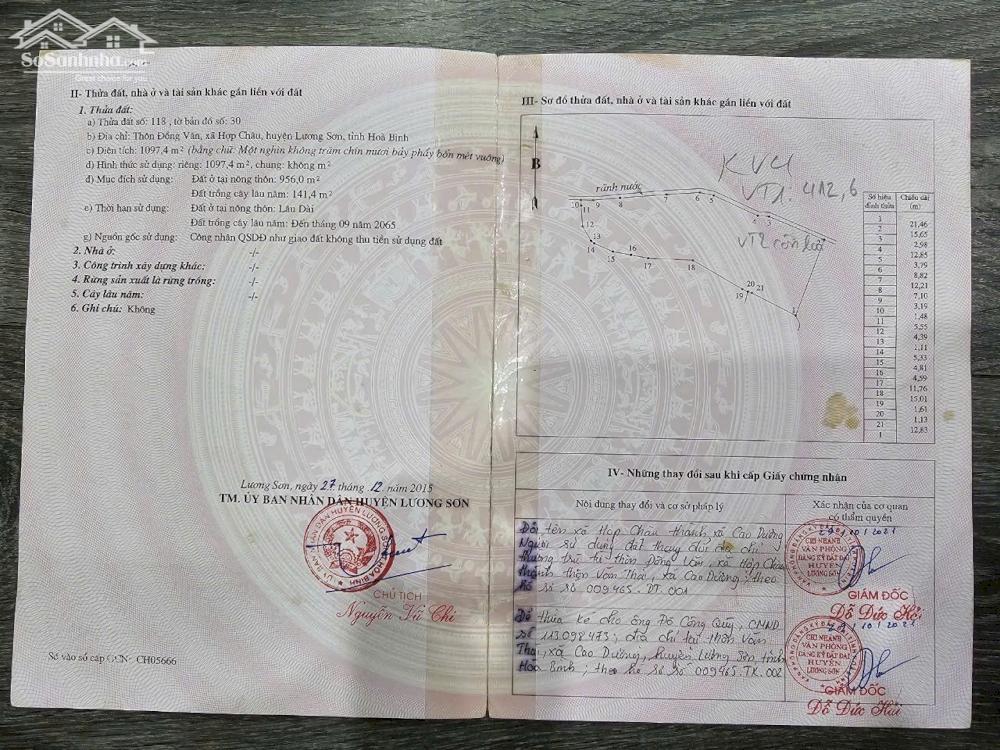 SoSanhnha.com
Great choice for you
II- Thửa đất, nhà ở và tài sản khác gắn liền với đất
1. Thửa đất:
a) Thửa đất số: 118 , tờ bản đồ số: 30
b) Địa chỉ: Thôn Đồng Văn, xã Hợp Châu, huyện Lương Sơn, tỉnh Hoà Bình
c) Diện tích: 1097,4 m² (bằng chữ: Một nghìn không trăm chín mươi bảy phẩy bốn mét vuông)
d) Hình thức sử dụng: riêng: 1097,4 m², chung: không m²
đ) Mục đích sử dụng: Đất ở tại nông thôn: 956,0 m²
Đất trồng cây lâu năm: 141,4 m²
e) Thời hạn sử dụng: Đất ở tại nông thôn: Lâu Dài
Đất trồng cây lâu năm: Đến tháng 09 năm 2065
g) Nguồn gốc sử dụng: Công nhận QSDĐ như giao đất không thu tiền sử dụng đất
2. Nhà ở: -/-
3. Công trình xây dựng khác: -/-
4. Rừng sản xuất là rừng trồng: -/-
5. Cây lâu năm: -/-
6. Ghi chú: Không
Lương Sơn, ngày 27 tháng 12 năm 2015
TM. ỦY BAN NHÂN DÂN HUYỆN LƯƠNG SƠN
CHỦ TỊCH
Nguyễn Vũ Chi
Số vào sổ cấp GCN: CH05666
III- Sơ đồ thửa đất, nhà ở và tài sản khác gắn liền với đất
B
KV4
VT1: 412,6
VT2 còn lại
rãnh nước
10 9 8 7 6 5
4 3
11
12
13
14
15 16 17 18
19 20 21
1
Số hiệu đỉnh thửa
Chiều dài (m)
1
21,46
2
15,65
3
2,98
4
12,85
5
3,79
6
8,82
7
12,21
8
7,10
9
3,19
10
1,48
11
5,55
12
4,39
13
1,11
14
5,33
15
4,81
16
4,59
17
11,76
18
15,01
19
1,61
20
1,13
21
12,83
1
IV- Những thay đổi sau khi cấp Giấy chứng nhận
Nội dung thay đổi và cơ sở pháp lý
Xác nhận của cơ quan có thẩm quyền
Đổi tên xã Hợp Châu thành xã Cao Dương
Người sử dụng đất thay đổi địa chỉ
thường trú từ thôn Đồng Văn, xã Hợp Châu
thành thôn Văn Thai, xã Cao Dương; theo
hồ sơ số 009465.DT.001
29/10/2021
CHI NHÁNH
VĂN PHÒNG
ĐĂNG KÝ ĐẤT ĐAI
HUYỆN
LƯƠNG SƠN
GIÁM ĐỐC
Đỗ Đức Hải
Để thừa kế cho ông Đỗ Công Quý, CMND
số 113098473; địa chỉ tại thôn Văn
Thai, xã Cao Dương, huyện Lương Sơn, tỉnh
Hòa Bình; theo hồ sơ số 009465.TK.002
29/10/2021
CHI NHÁNH
VĂN PHÒNG
ĐĂNG KÝ ĐẤT ĐAI
HUYỆN
LƯƠNG SƠN
GIÁM ĐỐC
Đỗ Đức Hải